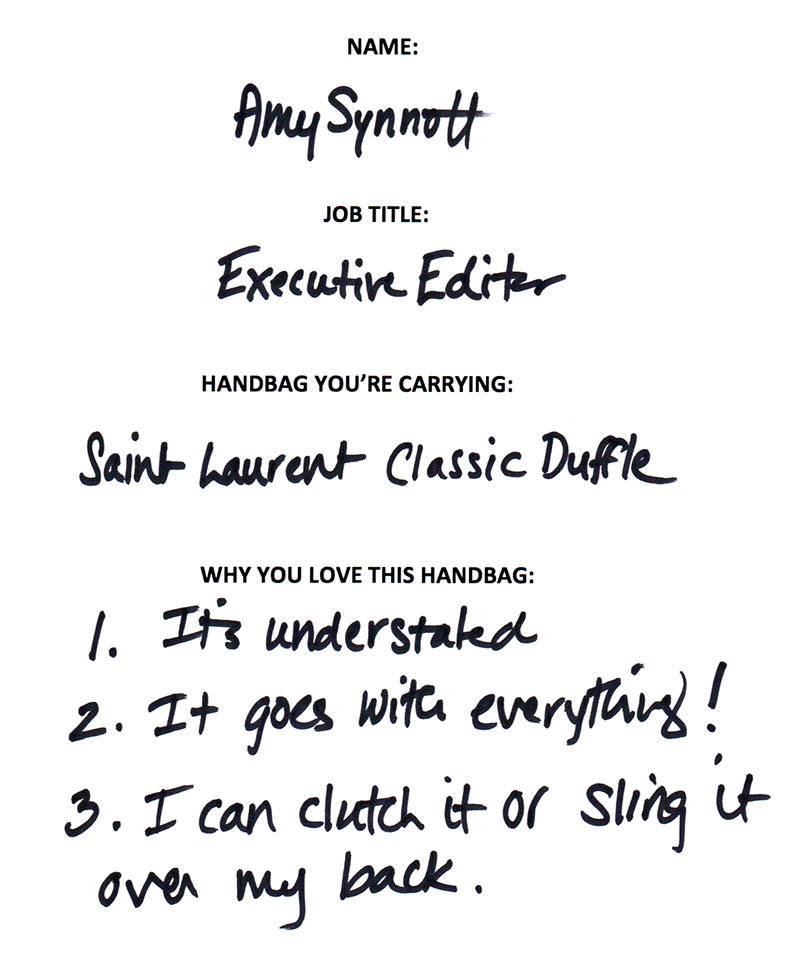 NAME:
Amy Synnott
JOB TITLE:
Executive Editor
HANDBAG YOU'RE CARRYING:
Saint Laurent Classic Duffle
WHY YOU LOVE THIS HANDBAG:
1. It's understated
2. It goes with everything!
3. I can clutch it or sling it
over my back.